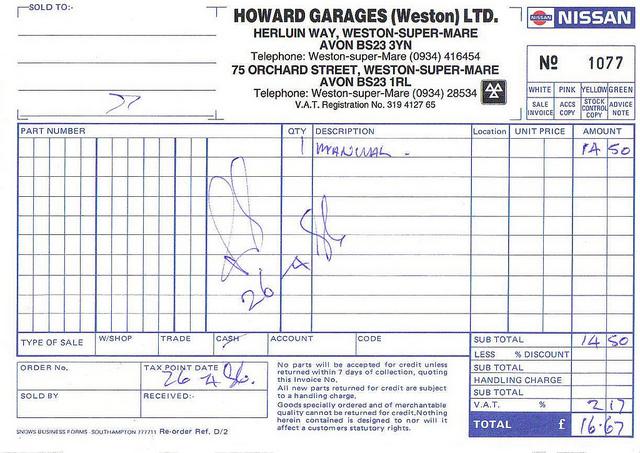 SOLD TO:-
HOWARD GARAGES (Weston) LTD.
HERLUIN WAY, WESTON-SUPER-MARE
AVON BS23 3YN
Telephone: Weston-super-Mare (0934) 416454
75 ORCHARD STREET, WESTON-SUPER-MARE
AVON BS23 1RL
Telephone: Weston-super-Mare (0934) 28534
V.A.T. Registration No. 319 4127 65
NISSAN NISSAN
No 1077
WHITE PINK YELLOW GREEN
SALE INVOICE ACCS COPY STOCK CONTROL COPY ADVICE NOTE
PART NUMBER QTY DESCRIPTION Location UNIT PRICE AMOUNT
1 MANUAL - 14 50
26 4
TYPE OF SALE W/SHOP TRADE CASH ACCOUNT CODE
SUB TOTAL 14 50
LESS % DISCOUNT
SUB TOTAL
HANDLING CHARGE
SUB TOTAL
V.A.T. % 2 17
TOTAL £ 16.67
ORDER No. TAX POINT DATE 26 4 86.
SOLD BY RECEIVED:-
No parts will be accepted for credit unless
returned within 7 days of collection, quoting
this Invoice No.
All new parts returned for credit are subject
to a handling charge.
Goods specially ordered and of merchantable
quality cannot be returned for credit. Nothing
herein contained is designed to nor will it
affect a customers statutory rights.
SNOWS BUSINESS FORMS · SOUTHAMPTON 777711 Re-order Ref. D/2